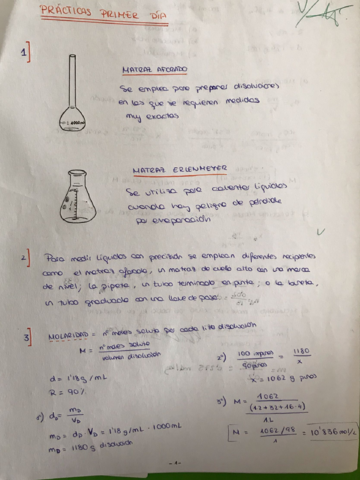 PRÁCTICAS PRIMER DÍA
1]
MATRAZ AFORADO
Se emplea para preparar disoluciones
en las que se requieren medidas
muy exactas
MATRAZ ERLENMEYER
Se utiliza para calentar líquidos
cuando hay peligro de pérdida
por evaporación
2] Para medir líquidos con precisión se emplean diferentes recipientes
como el matraz aforado, un matraz de cuello alto con una marca
de nivel; la pipeta, un tubo terminado en punta; o la bureta,
un tubo graduado con una llave de paso.
3] MOLARIDAD = nº moles soluto por cada litro disolución
M = nº moles soluto / volumen disolución
d = 1'18 g/mL
R = 90%
1º) d_D = m_D / V_D
m_D = d_D · V_D = 1'18 g/mL · 1000mL
m_D = 1180 g disolución
2º) 100 impuros / 90 puros = 1180 / x
x = 1062 g puros
3º) M = 1062 / (1·2+32+16·4) / 1L
M = 1062/98 / 1 = 10'836 mol/L
-1-